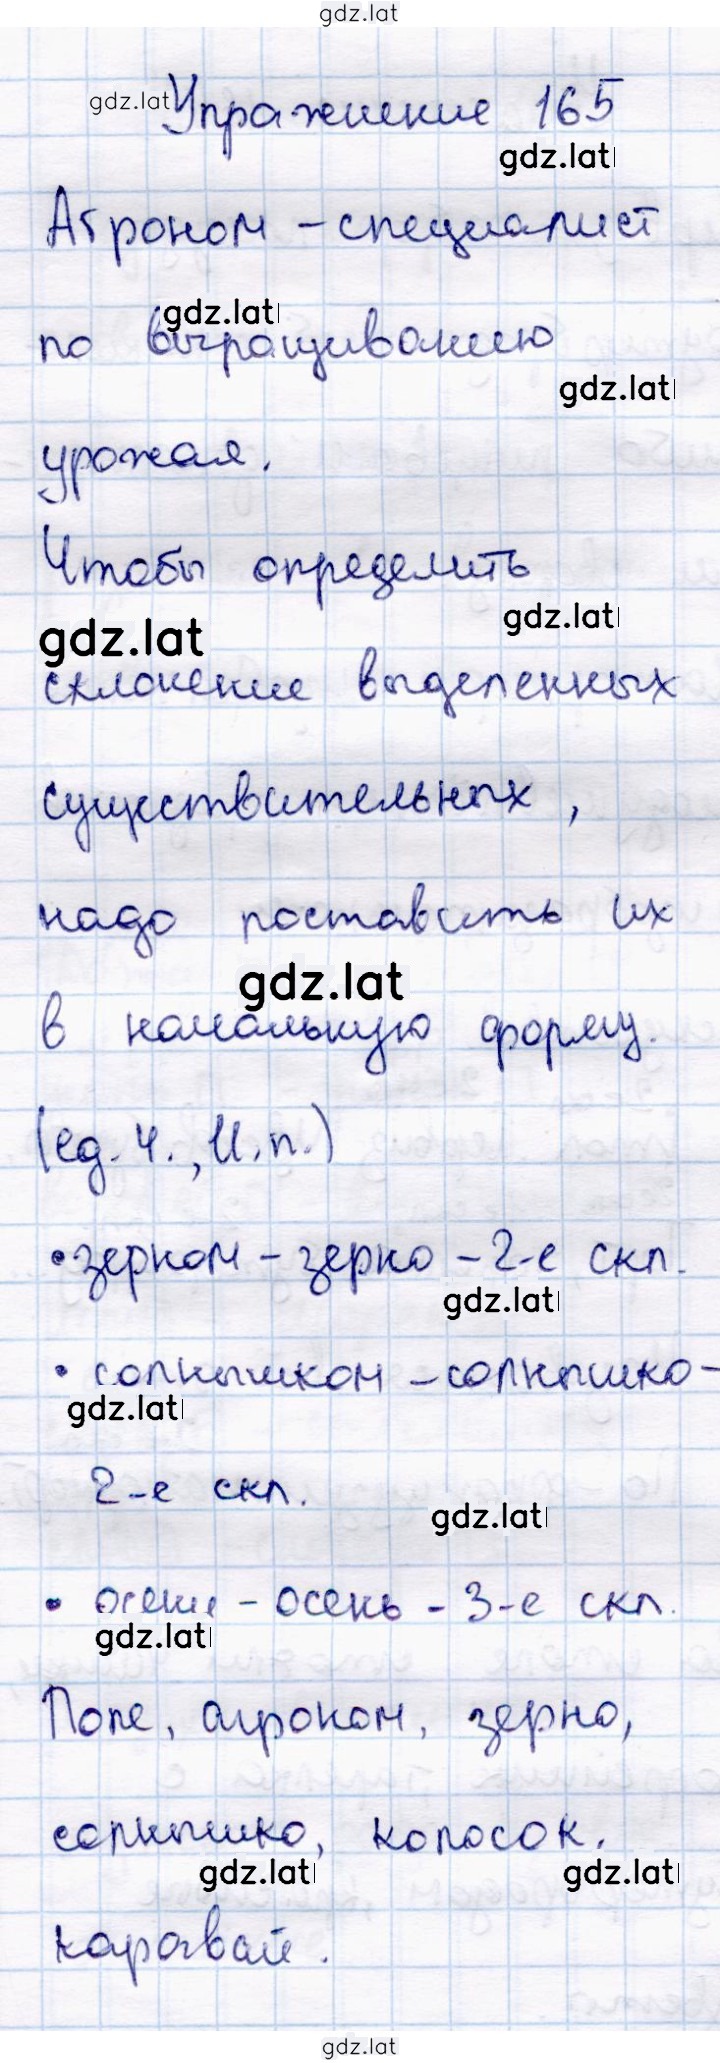 gdz.lat
gdz.lat
Упражнение 165
gdz.lat
Агроном - специалист
gdz.lat
по выращиванию
gdz.lat
урожая.
Чтобы определить
gdz.lat
gdz.lat
склонение выделенных
существительных,
надо поставить их
gdz.lat
в начальную форму.
(ед. ч., И. п.)
• зерном - зерно - 2-е скл.
gdz.lat
• солнышком - солнышко -
gdz.lat
2-е скл.
gdz.lat
• осени - осень - 3-е скл.
gdz.lat
Поле, агроном, зерно,
солнышко, колосок.
gdz.lat
gdz.lat
каравай.
gdz.lat